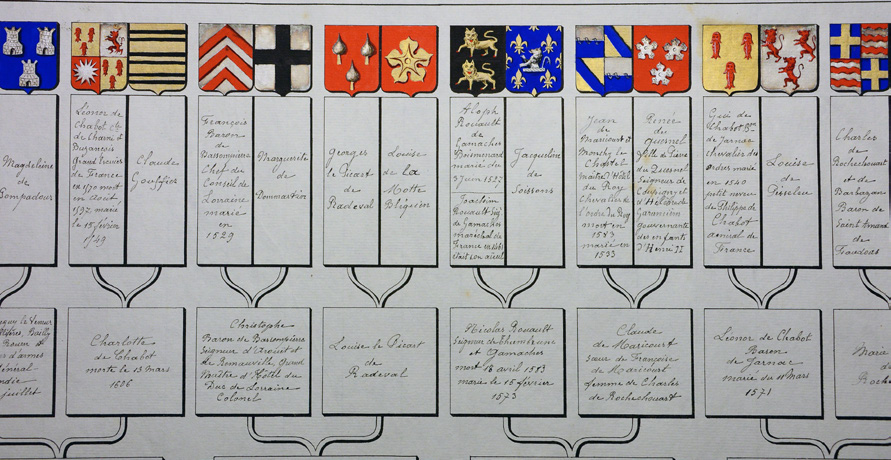 Magdeleine
de
Pompadour
Léonor de
Chabot Cte
de Charni et
Buzancois
Grand Ecuyer
de France
en 1570 mort
en Août
1597, marié
le 15 février
1549
Claude
Gouffier
François
Baron
de
Bassompierre
Chef du
Conseil de
Lorraine
marié
en
1529
Marguerite
de
Dommartin
Georges
le Picart
de
Radeval
Louise
de la
Motte
Bléquien
Aloph
Rouault
de
Gamaches
marié du
3 Juin 1527
Joachim
Rouault Sgr
de Gamaches
maréchal de
France en 1461
était son aïeul
Jacqueline
de
Soissons
Jean
de
Maricourt et
Monchy le
Chatel
Maître d'Hôtel
du Roy
Chevalier de
l'ordre du Roy
mort en
1583
marié en
1533
Renée
du
Quesnel
fille de
du Quesnel
Seigneur de
Coupigny et
d'Hélène de
gouvernante
des enfants
d'Henri II
Gui de
Chabot Bon
de Jarnac
chevalier des
Ordres marié
en 1540
petit neveu
de Philippe de
Chabot
amiral de
France
Louise
de
Pisseleu
Charles
de
Rochechouart
et de
Barbazan
Baron de
Saint Amand
de
Faudoas
le Veneur
Bailly
Rouen et
d'armes
Général
juillet
Charlotte
de Chabot
morte le 15 mars
1606
Christophe
Baron de Bassompierre
Seigneur d'Arouet et
de Removille, Grand
Maître d'Hôtel du
Duc de Lorraine
Colonel
Louise le Picart
de
Radeval
Nicolas Rouault
Seigneur de
et Gamaches
mort 18 avril 1583
marié le 15 février
1573
Claude
de Maricourt
sœur de Françoise
de Maricourt
femme de Charles
de Rochechouart
Léonor de Chabot
Baron
de Jarnac
marié du 11 Mars
1571
de